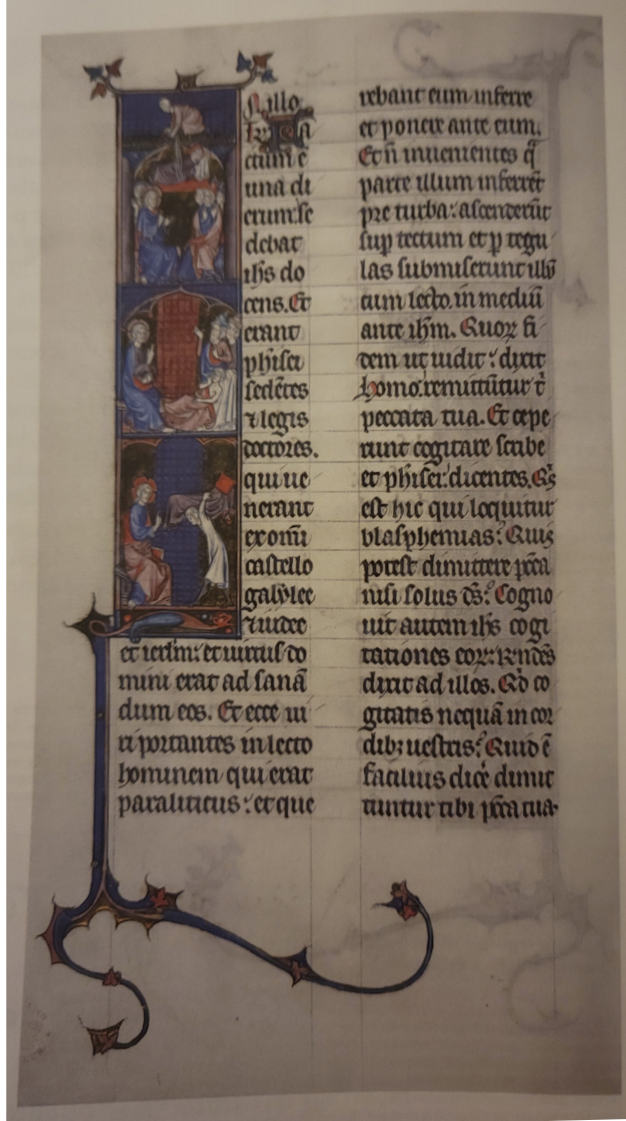 N illo
tp̄r fa
ctum ē
una di
erum: se
debat
ihs do
cens. Et
erant
phisei
sedētes
⁊ legis
doctores.
qui ue
nerant
ex om̄i
castello
galylee
⁊ iudee
et ierl̄m: et uirtus do
mini erat ad sanā
dum eos. Et ecce ui
ri portantes in lecto
hominem qui erat
paraliticus: et que
rebant eum inferre
et ponere ante eum.
Et n̄ inuenientes q̄
parte illum inferrēt
pre turba: ascenderūt
sup tectum et ꝑ tegu
las submiserunt illū
cum lecto. in mediū
ante ihm̄. Quoꝝ fi
dem ut uidit: dixit
homo. remittūtur t̄
peccata tua. Et cepe
runt cogitare scribe
et phisei: dicentes. Qͥs
est hic qui loquitur
blasphemias: Quis
potest dimittere pc̄ca
nisi solus ds̄: Cogno
uit autem ihs cogi
tationes eoꝝ: rn̄dēs
dixit ad illos. Qͥd co
gitatis nequā in cor
dibꝫ uestris: Quid ē
facilius dic̄e dimit
tuntur tibi pc̄ca tua.